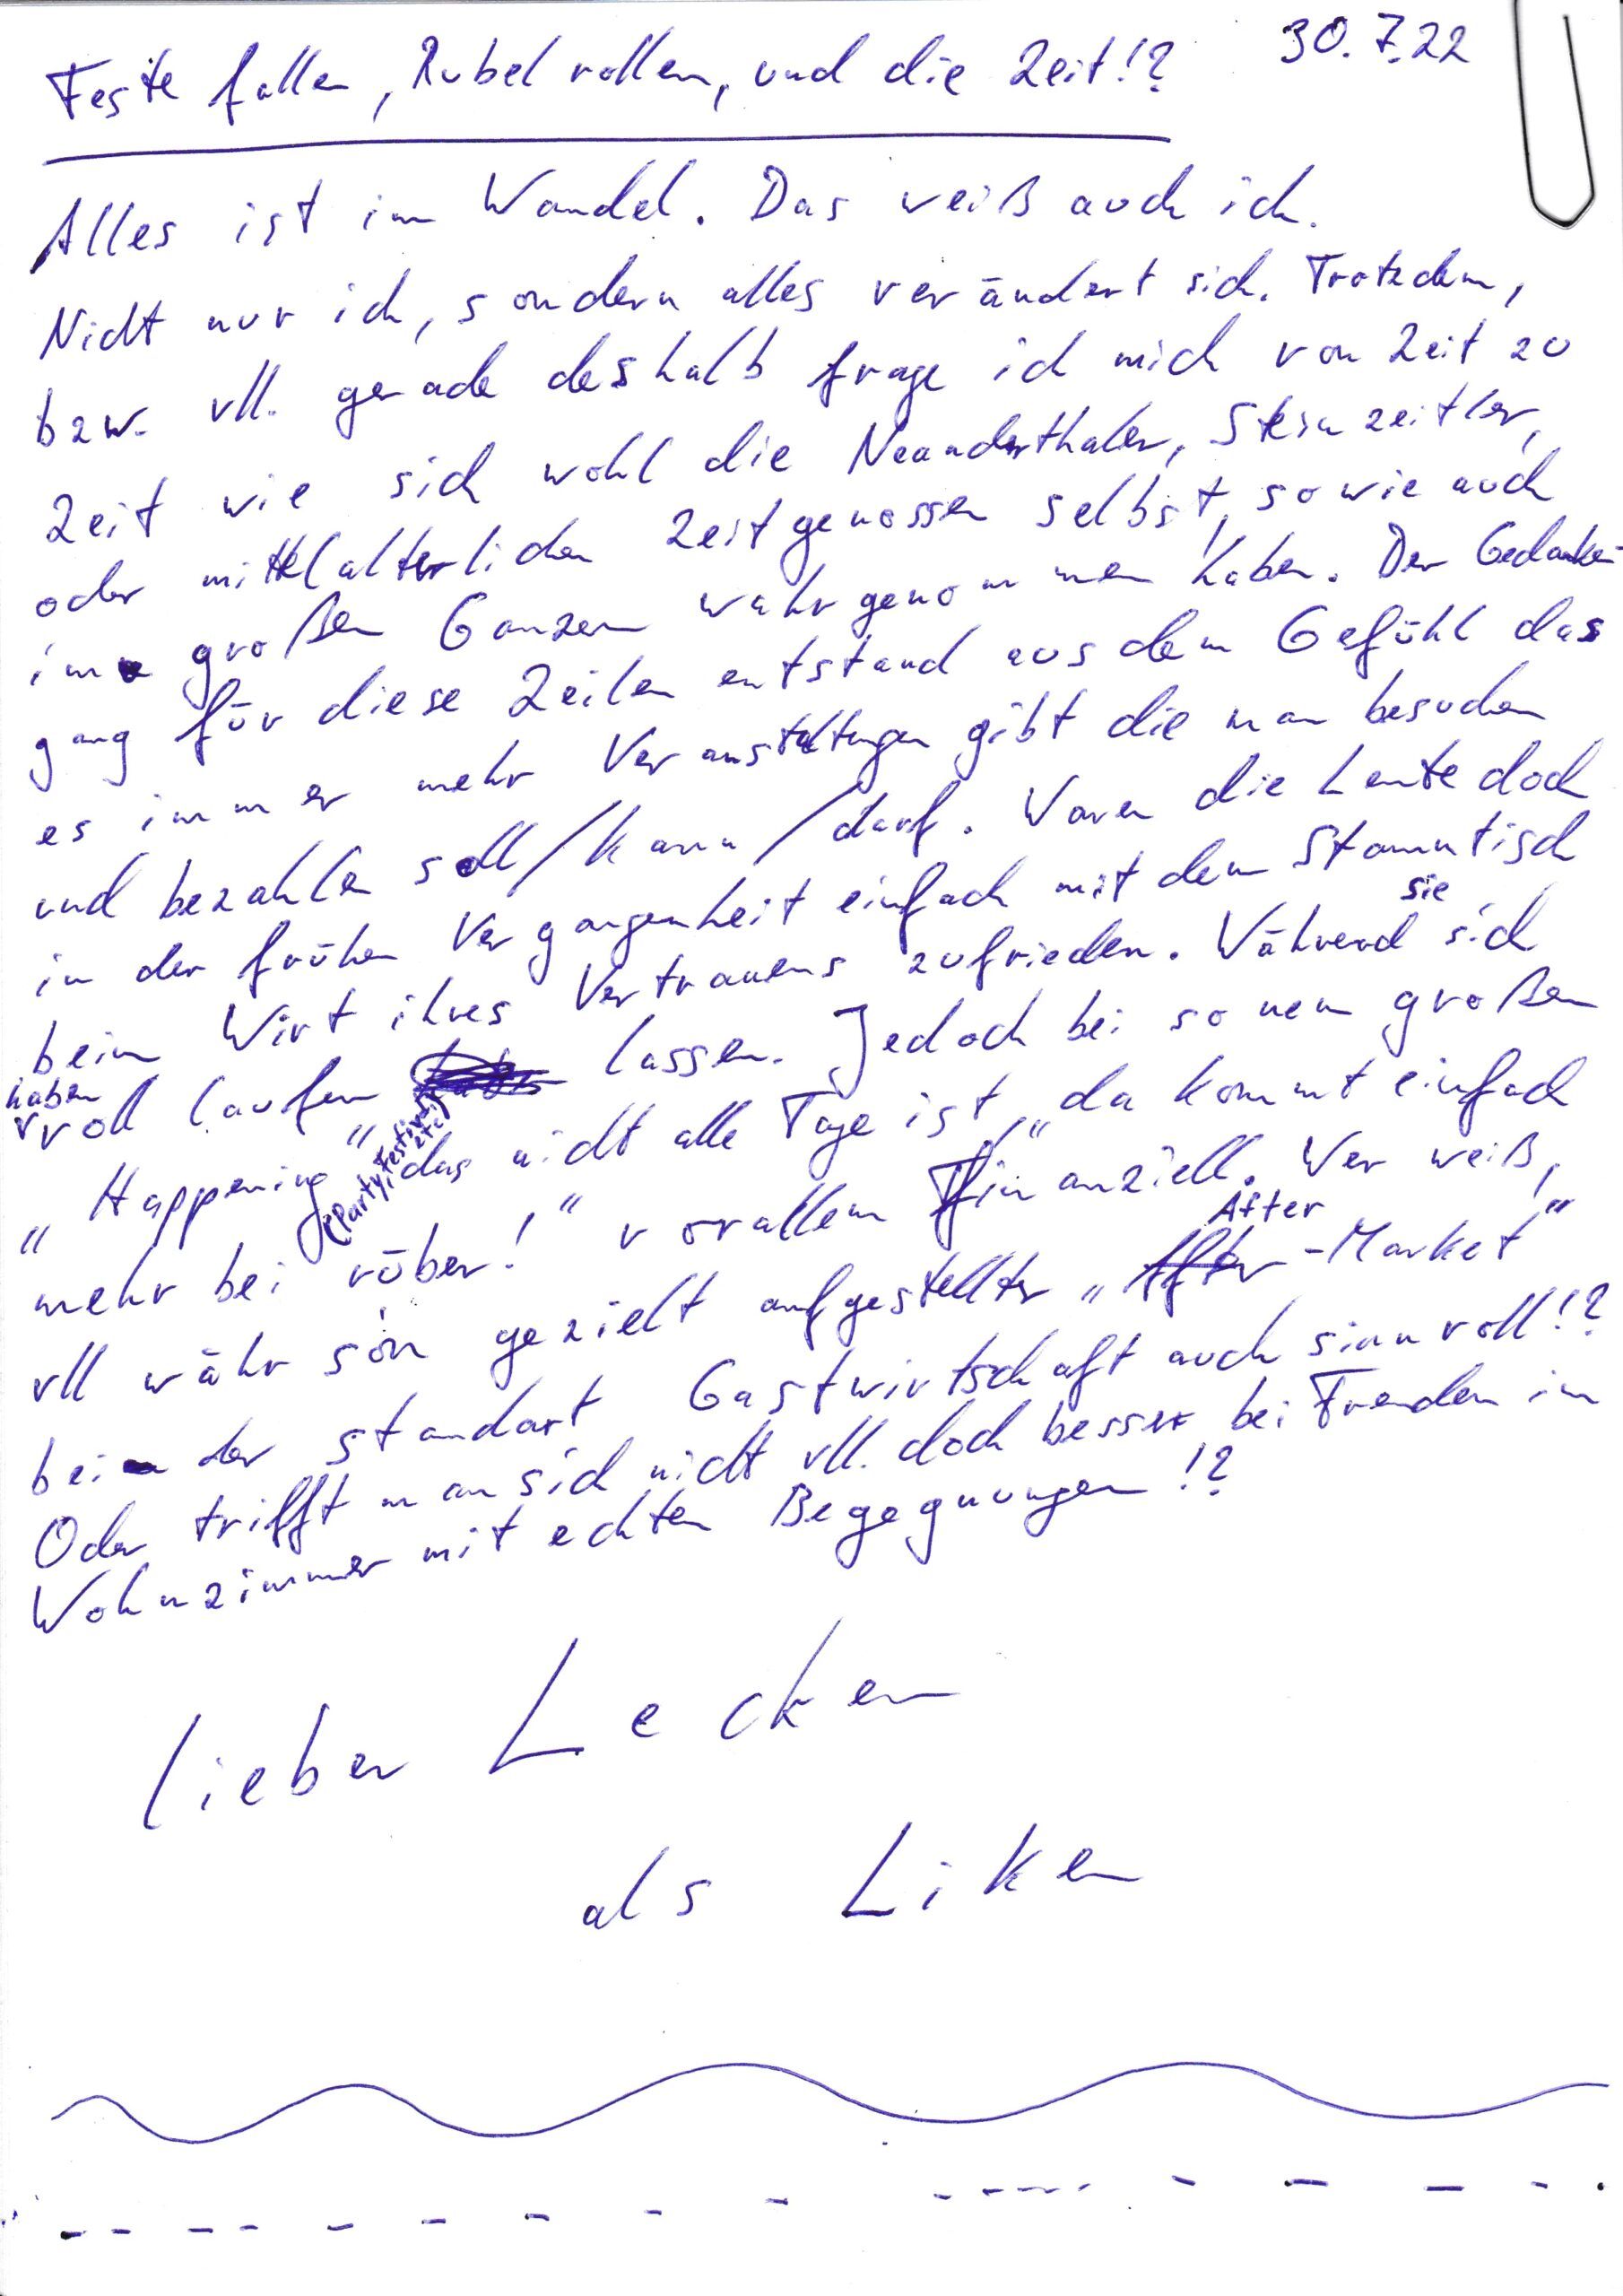 30.7.22
Feste fallen, Rubel rollen, und die Zeit!?
Alles ist im Wandel. Das weiß auch ich.
Nicht nur ich, sondern alles verändert sich. Trotzdem,
bzw. vll. gerade deshalb frage ich mich von Zeit zu
Zeit wie sich wohl die Neanderthaler, Steinzeitler,
oder mittelalterlichen Zeitgenossen selbst, sowie auch
im großen Ganzen wahrgenommen haben. Der Gedanken-
gang für diese Zeilen entstand aus dem Gefühl das
es immer mehr Veranstaltungen gibt die man besuchen
und bezahlen soll/kann/darf. Waren die Leute doch
in der frühen Vergangenheit einfach mit dem Stammtisch
beim Wirt ihres Vertrauens zufrieden. Während sie sich
haben voll laufen lassen. Jedoch bei so nem großen
"Happening" (Party, Festival, etc.), das nicht alle Tage ist, "da kommt einfach
mehr bei rüber!" vorallem Finanziell. Wer weiß,
vll währ so'n gezielt aufgestellter "After-Market"
bei der standart Gastwirtschaft auch sinnvoll!?
Oder trifft man sich nicht vll. doch besser bei Freuden im
Wohnzimmer mit echten Begegnungen!?
lieber Lecken
als Liken